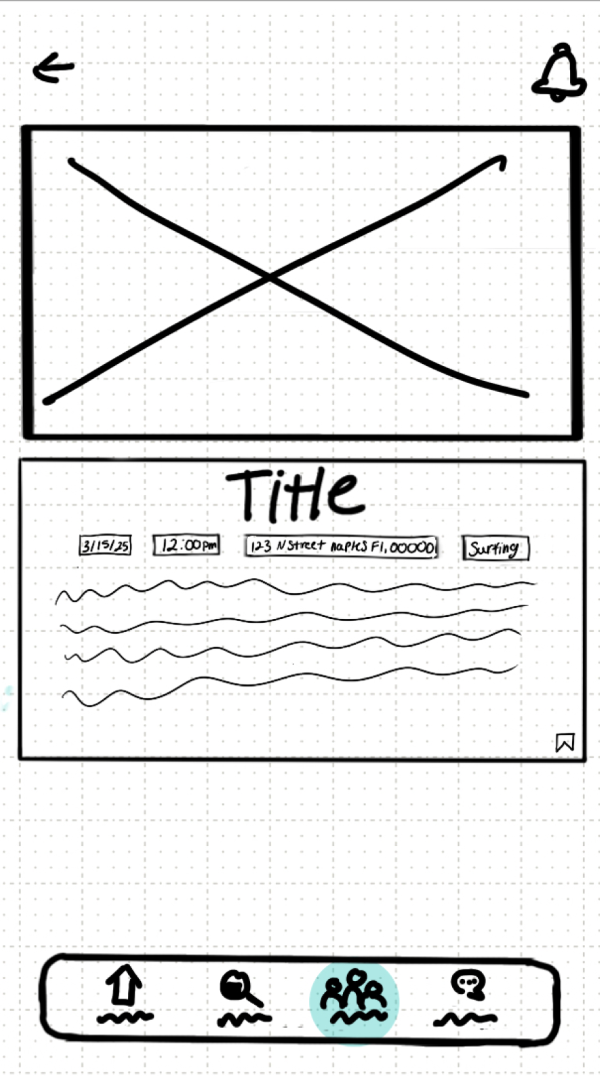 Title
3/15/25 12:00pm 123 N Street naples Fl, 00000 Surfing